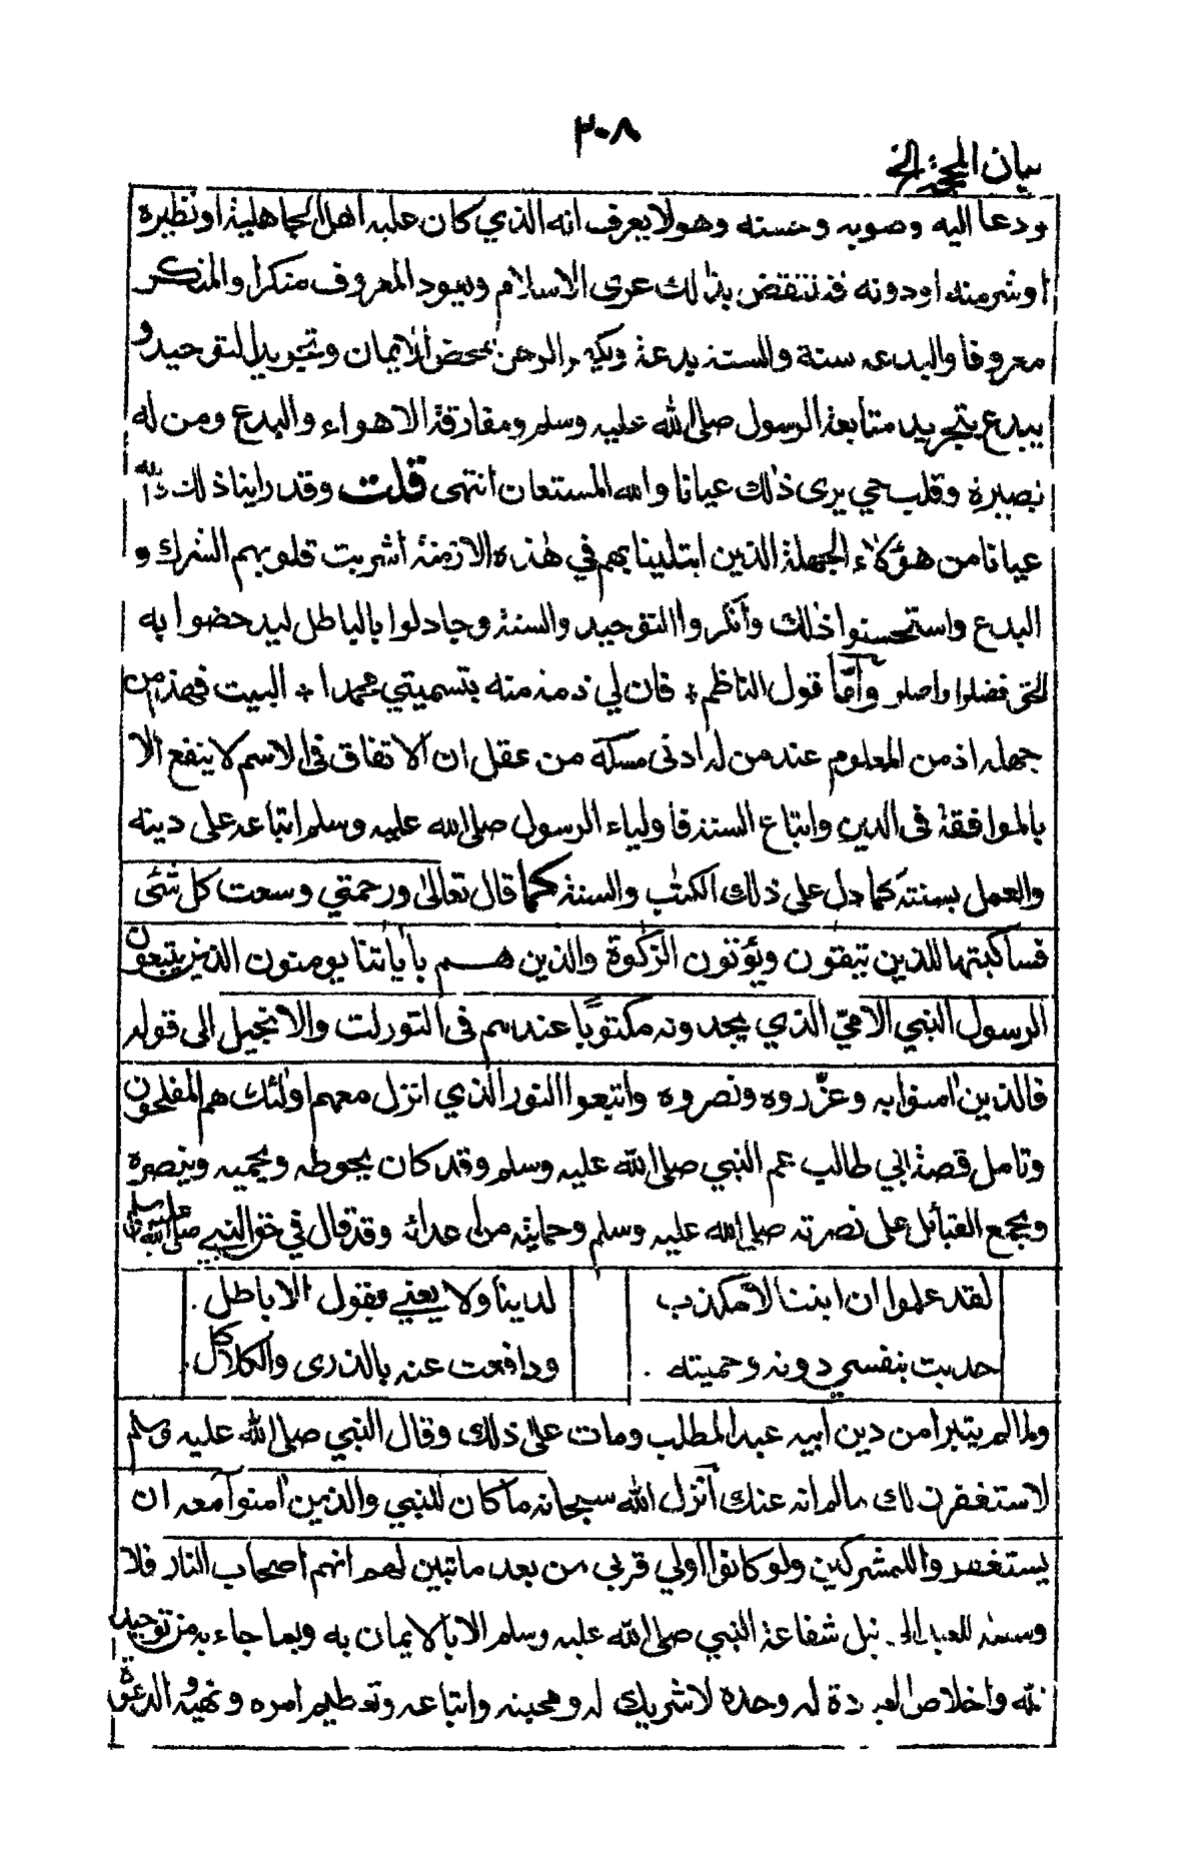 ٣٠٨
بيان المحجة الخ
ودعا اليه وصوبه وحسنه وهو لا يعرف انه الذي كان عليه اهل الجاهلية او نظيره
او شر منه او دونه فتنتقض بذلك عرى الاسلام ويعود المعروف منكرا والمنكر
معروفا والبدعه سنة والسنة بدعة ويكفر الرجل بمحض الايمان وتجريد التوحيد و
يبدع بتجريد متابعة الرسول صلى الله عليه وسلم ومفارقة الاهواء والبدع ومن له
بصيرة وقلب حي يرى ذلك عيانا والله المستعان انتهى قلت وقد راينا ذلك والله
عيانا من هؤلاء الجهلة الذين ابتلينا بهم في هذه الازمنة أشربت قلوبهم الشرك و
البدع واستحسنوا ذلك وأنكروا التوحيد والسنة وجادلوا بالباطل ليدحضوا به
الحق فضلوا واضلو وأمّا قول الناظم + فان لي ذمة منه بتسميتي محمدا + البيت فهذا من
جهله اذ من المعلوم عند من له ادنى مسكة من عقل ان الاتفاق في الاسم لا ينفع الا
بالموافقة في الدين واتباع السنة فاولياء الرسول صلى الله عليه وسلم اتباعه على دينه
والعمل بسنته كما دل على ذلك الكتب والسنة كما قال تعالى ورحمتي وسعت كل شئ
فسأكبتها للذين يتقون ويؤتون الزكوة والذين هم بأياتنا يومنون الذين يتبعون
الرسول النبي الامي الذي يجدونه مكتوبا عندهم في التورلت والانجيل الى قوله
فالذين امنوا به وعزّروه ونصروه واتبعوا النور الذي انزل معهم اولئك هم المفلحون
وتامل قصة ابي طالب عم النبي صلى الله عليه وسلم وقد كان يحوطه ويحميه وينصره
ويجمع القبائل على نصرته صلى الله عليه وسلم وحمايته من اعدائه وقد قال في حق النبي صلى الله عليه وسلم
لقد علموا ان ابننا لا مكذب لدينا ولا يعني بقول الاباطل .
حدبت بنفسي دونه وحميته . ودافعت عنه بالذرى والكلاكل .
ولما لم يتبرا من دين أبيه عبد المطلب ومات على ذلك وقال النبي صلى الله عليه وسلم
لاستغفرن لك مالم انه عنك أنزل الله سبحانه ما كان للنبي والذين امنوا معه ان
يستغفروا للمشركين ولو كانوا اولي قربى من بعد ما تبين لهم انهم اصحاب النار فلا
وسيلة للعبد الى نيل شفاعة النبي صلى الله عليه وسلم الا بالايمان به وبما جاء به من توحيد
الله واخلاص العبادة له وحده لا شريك له ومحبته واتباعه وتعظيم امره ونهيه والدعوة